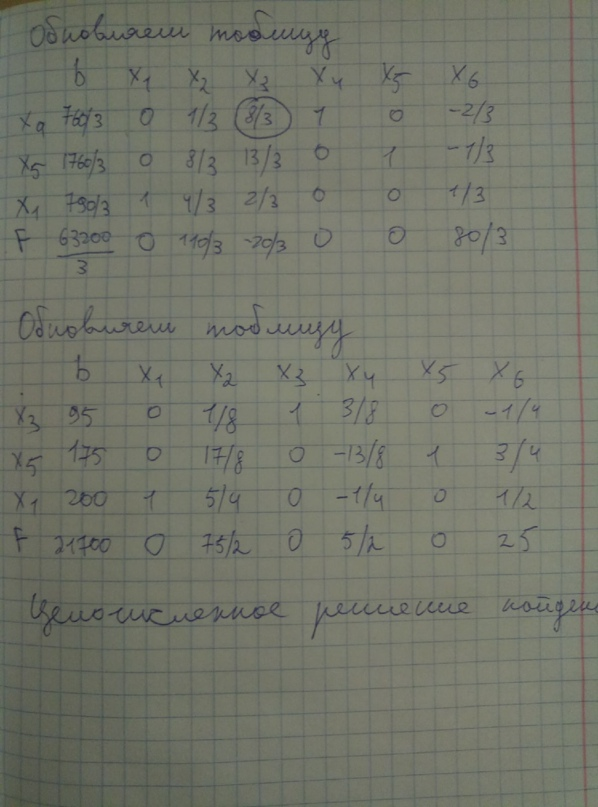 Обновляем таблицу
b x1 x2 x3 x4 x5 x6
x4 760/3 0 1/3 8/3 1 0 -2/3
x5 1760/3 0 8/3 13/3 0 1 -1/3
x1 790/3 1 4/3 2/3 0 0 1/3
F 63200/3 0 110/3 -20/3 0 0 80/3
Обновляем таблицу
b x1 x2 x3 x4 x5 x6
x3 95 0 1/8 1 3/8 0 -1/4
x5 175 0 17/8 0 -13/8 1 3/4
x1 200 1 5/4 0 -1/4 0 1/2
F 21700 0 75/2 0 5/2 0 25
Целочисленное решение найден